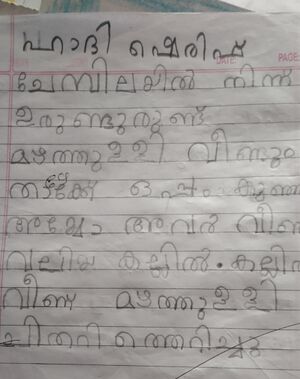 ഹാദി ഷെരിഫ്
DATE: PAGE
ചേമ്പിലയിൽ നിന്ന്
ഉരുണ്ടുരുണ്ട്
മഴത്തുള്ളി വീണ്ടും
താഴേക്ക് ഒപ്പം കുഞ്ഞ
അയ്യോ അവർ വീണ
വലിയ കല്ലിൽ. കല്ലിൽ
വീണ് മഴത്തുള്ളി
ചിതറി ത്തെറിച്ചു